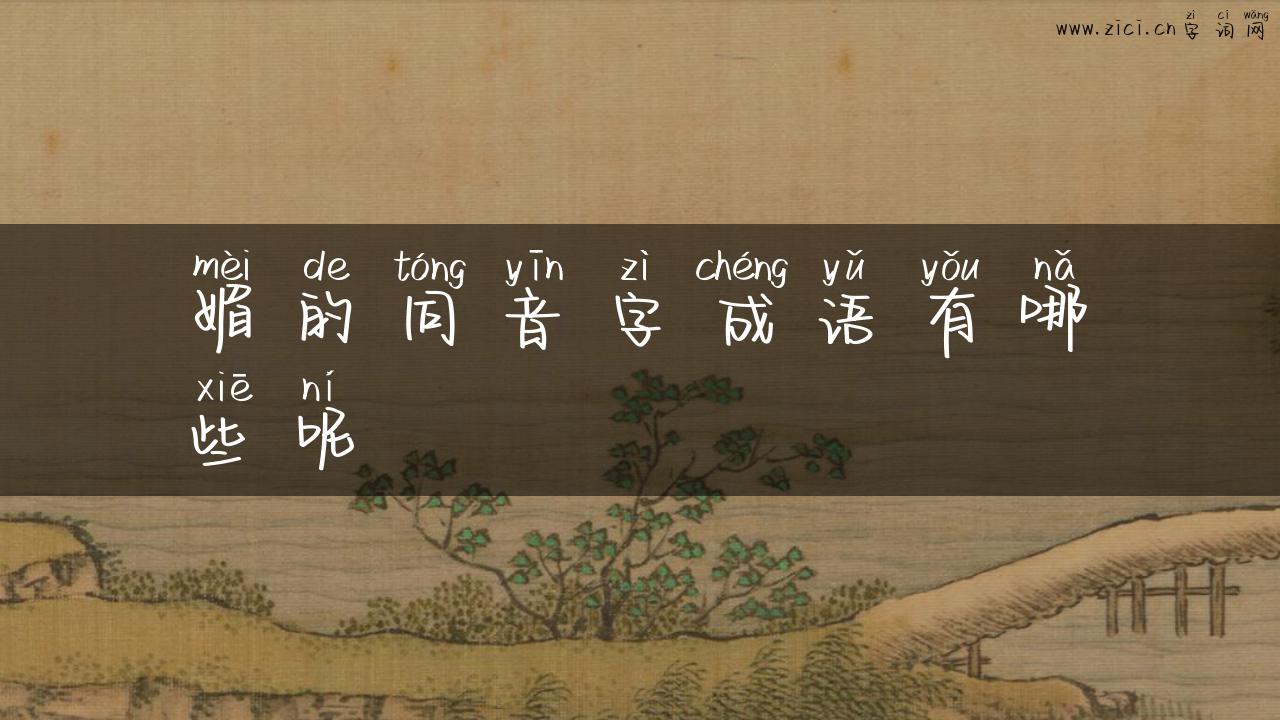 zì cí wǎng
www.zici.cn 字词网
mèi de tóng yīn zì chéng yǔ yǒu nǎ
媚的同音字成语有哪
xiē ní
些呢